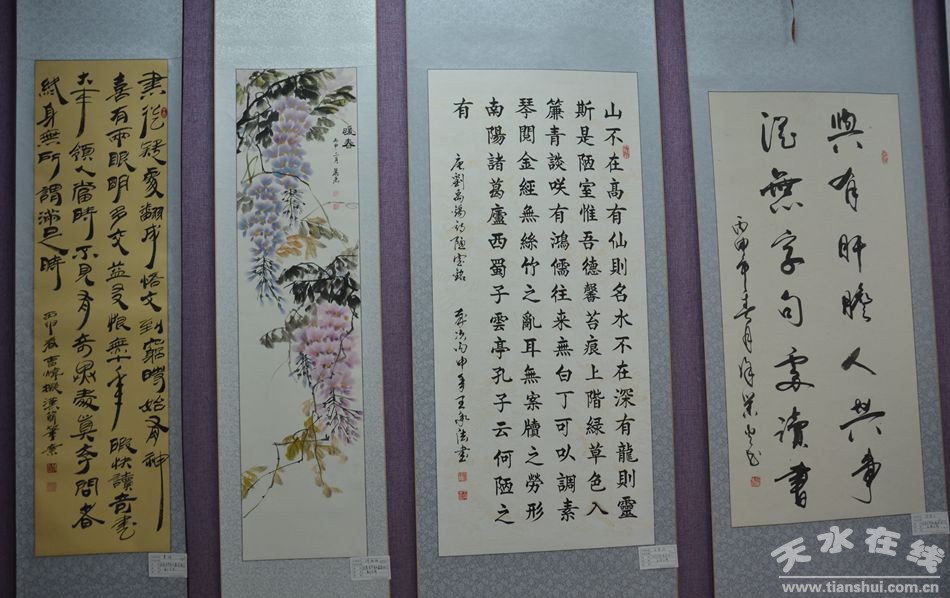 與有肝膽人共事
從無字句處讀書
丙申年春月
山不在高有仙則名水不在深有龍則靈
斯是陋室惟吾德馨苔痕上階緑草色入
簾青談咲有鴻儒往来無白丁可以調素
琴閱金經無絲竹之亂耳無案牘之勞形
南陽諸葛廬西蜀子雲亭孔子云何陋之
有
唐劉禹錫詩陋室銘
丙申年王承法書
暖春
書從疑處翻成悟文到窮時始有神
喜有兩眼明多交益友恨無十年暇快讀奇書
大本領人當時不見有奇異處真学問者
終身無所謂滿足時
丙申春
天水在线
www.tianshui.com.cn